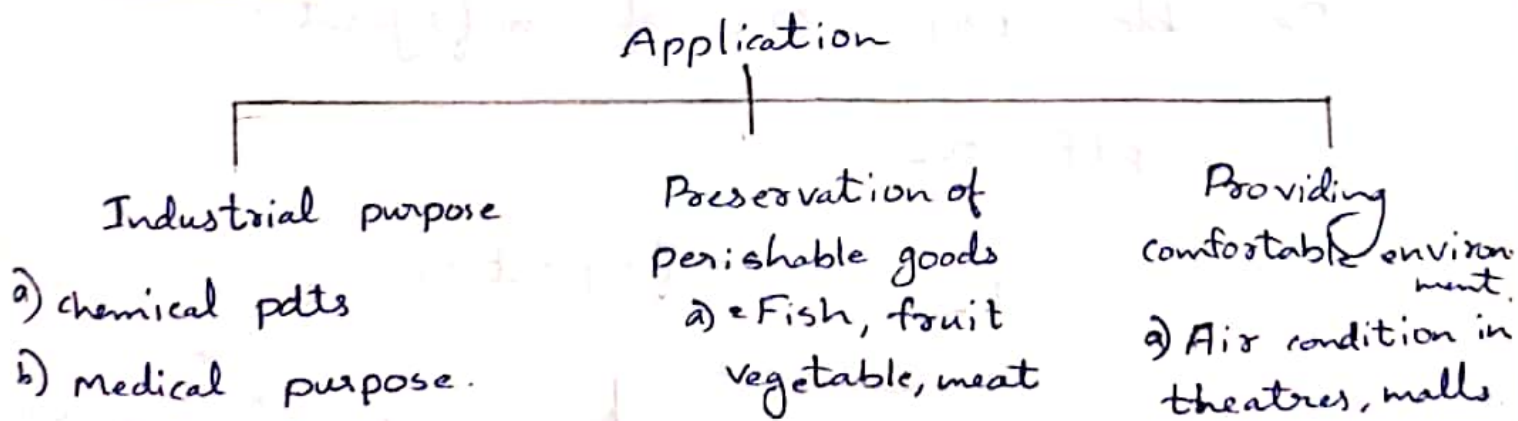 Application
Industrial purpose
a) chemical pdts
b) Medical purpose.
Preservation of
perishable goods
a) Fish, fruit
vegetable, meat
Providing
comfortable environ-
ment.
a) Air condition in
theatres, malls